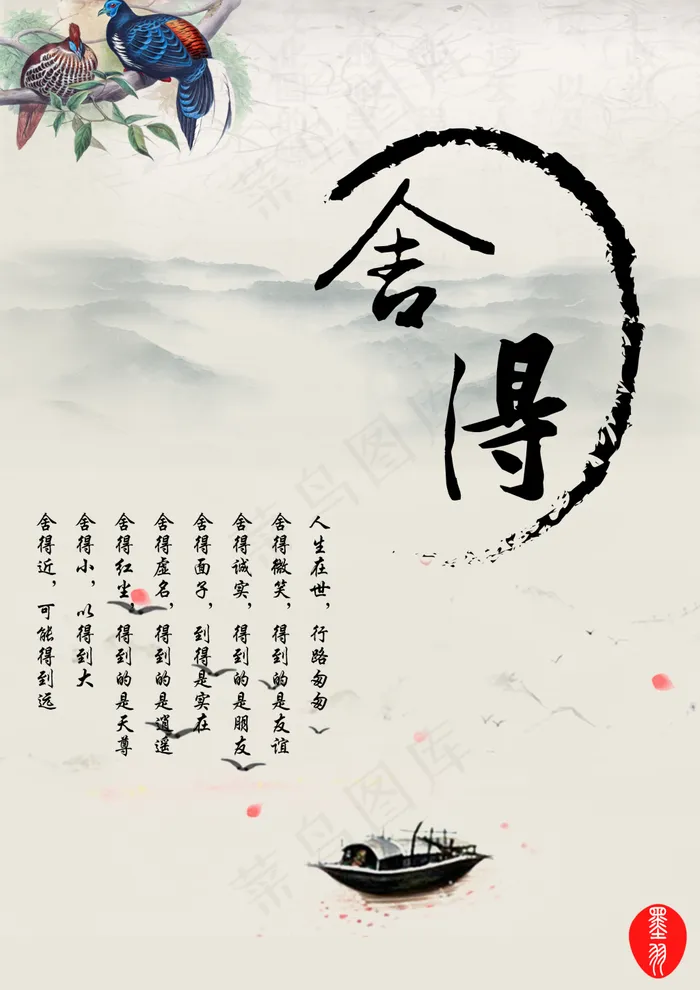 舍得
人生在世，行路匆匆
舍得微笑，得到的是友谊
舍得诚实，得到的是朋友
舍得面子，到得是实在
舍得虚名，得到的是逍遥
舍得红尘，得到的是天尊
舍得小，以得到大
舍得近，可能得到远
墨羽
菜鸟图库
菜鸟图库
菜鸟图库